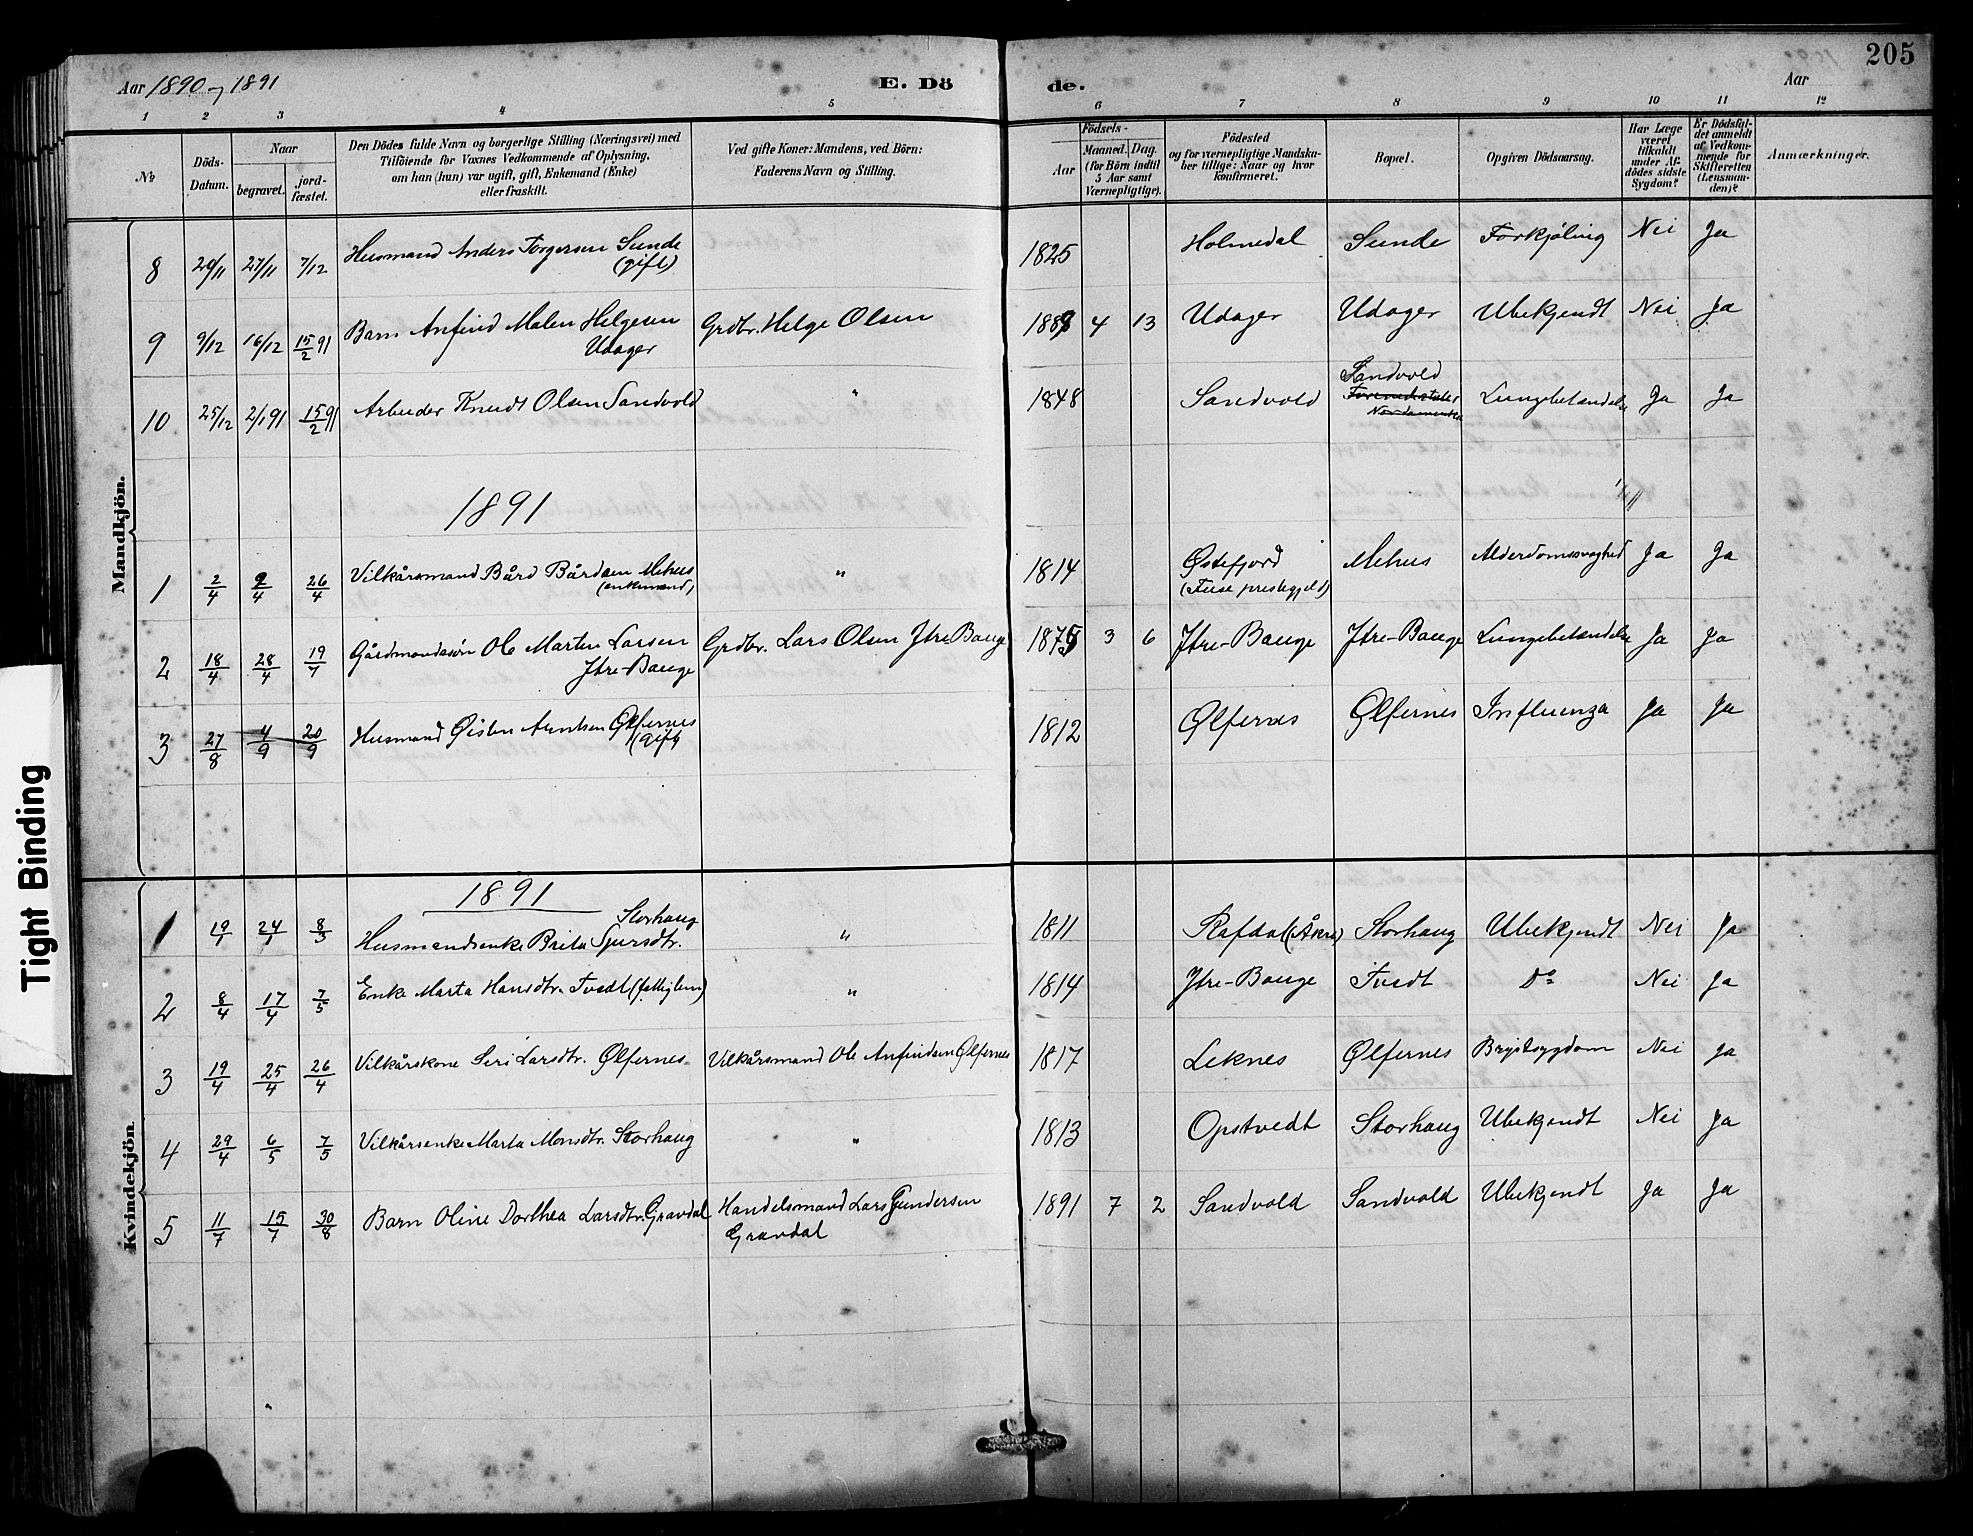 205
Aar 1890 og 1891
E. Dö
de.
Aar
1 2 3 4 5 6 7 8 9 10 11 12
No
Döds-Datum.
Naar
begravet.
jord-fæstet.
Den Dödes fulde Navn og borgerlige Stilling (Næringsvei) med
Tilföiende for Voxnes Vedkommende af Oplysning,
om han (hun) var ugift, gift, Enkemand (Enke)
eller fraskilt.
Ved gifte Koner: Mandens, ved Börn:
Faderens Navn og Stilling.
Födsels-
Aar
Maaned. Dag.
(for Börn indtil
5 Aar samt
Værnepligtige).
Födested
og for værnepligtige Mandska-
ber tillige: Naar og hvor
konfirmeret.
Bopæl.
Opgiven Dödsaarsag.
Har Læge
været
tilkaldt
under Af-
dödes sidste
Sygdom?
Er Dödsfal-
det anmeldt
af Vedkom-
mende for
Skifteretten
(Lensman-
den)?
Anmærkninger.
Mandkjön.
8 20/11 27/11 7/12 Husmand Anders Torgersen Sunde (gift) 1825 Holmedal Sunde Forkjøling Nei Ja
9 9/12 16/12 15/2 91 Barn Anfind Malen Helgesen Udager Grdbr. Helge Olsen 1889 4 13 Udager Udager Ubekjendt Nei Ja
10 25/12 2/1 91 15/2 91 Arbeider Knudt Olsen Sandvold " 1848 Sandvold Sandvold Lungebetændelse Ja Ja
1891
1 2/4 9/4 26/4 Vilkårsmand Bård Bårdsen Mehus (enkemand) " 1814 Østefjord (Fuse prestegjeld) Mehus Alderdomssvaghed Ja Ja
2 18/4 28/4 19/7 Gårdmandssøn Ole Martin Larsen Ytre-Bauge Grdbr. Lars Olsen Ytre Bauge 1875 3 6 Ytre-Bauge Ytre-Bauge Lungebetændelse Ja Ja
3 27/8 4/9 20/9 Husmand Øisten Arntsen Ølfernes (gift) 1812 Ølfernes Ølfernes Influenza Ja Ja
Kvindekjön.
1891
1 19/1 24/1 8/3 Husmandsenke Brita Sjursdtr. Storhaug " 1811 Rafdal (Åkre) Storhaug Ubekjendt Nei Ja
2 8/4 17/4 7/5 Enke Marta Hansdtr. Tvedt (fattiglem) " 1814 Ytre-Bauge Tvedt Do Nei Ja
3 19/4 25/4 26/4 Vilkårskone Seri Larsdtr. Ølfernes Vilkårsmand Ole Anfindsen Ølfernes 1817 Leknes Ølfernes Brystsygdom Nei Ja
4 29/4 6/5 7/5 Vilkårsenke Marta Monsdtr. Storhaug " 1813 Opstvedt Storhaug Ubekjendt Nei Ja
5 11/7 15/7 30/8 Barn Oline Dorthea Larsdtr. Gravdal Handelsmand Lars Gundersen Gravdal 1891 7 2 Sandvold Sandvold Ubekjendt Ja Ja
Tight Binding